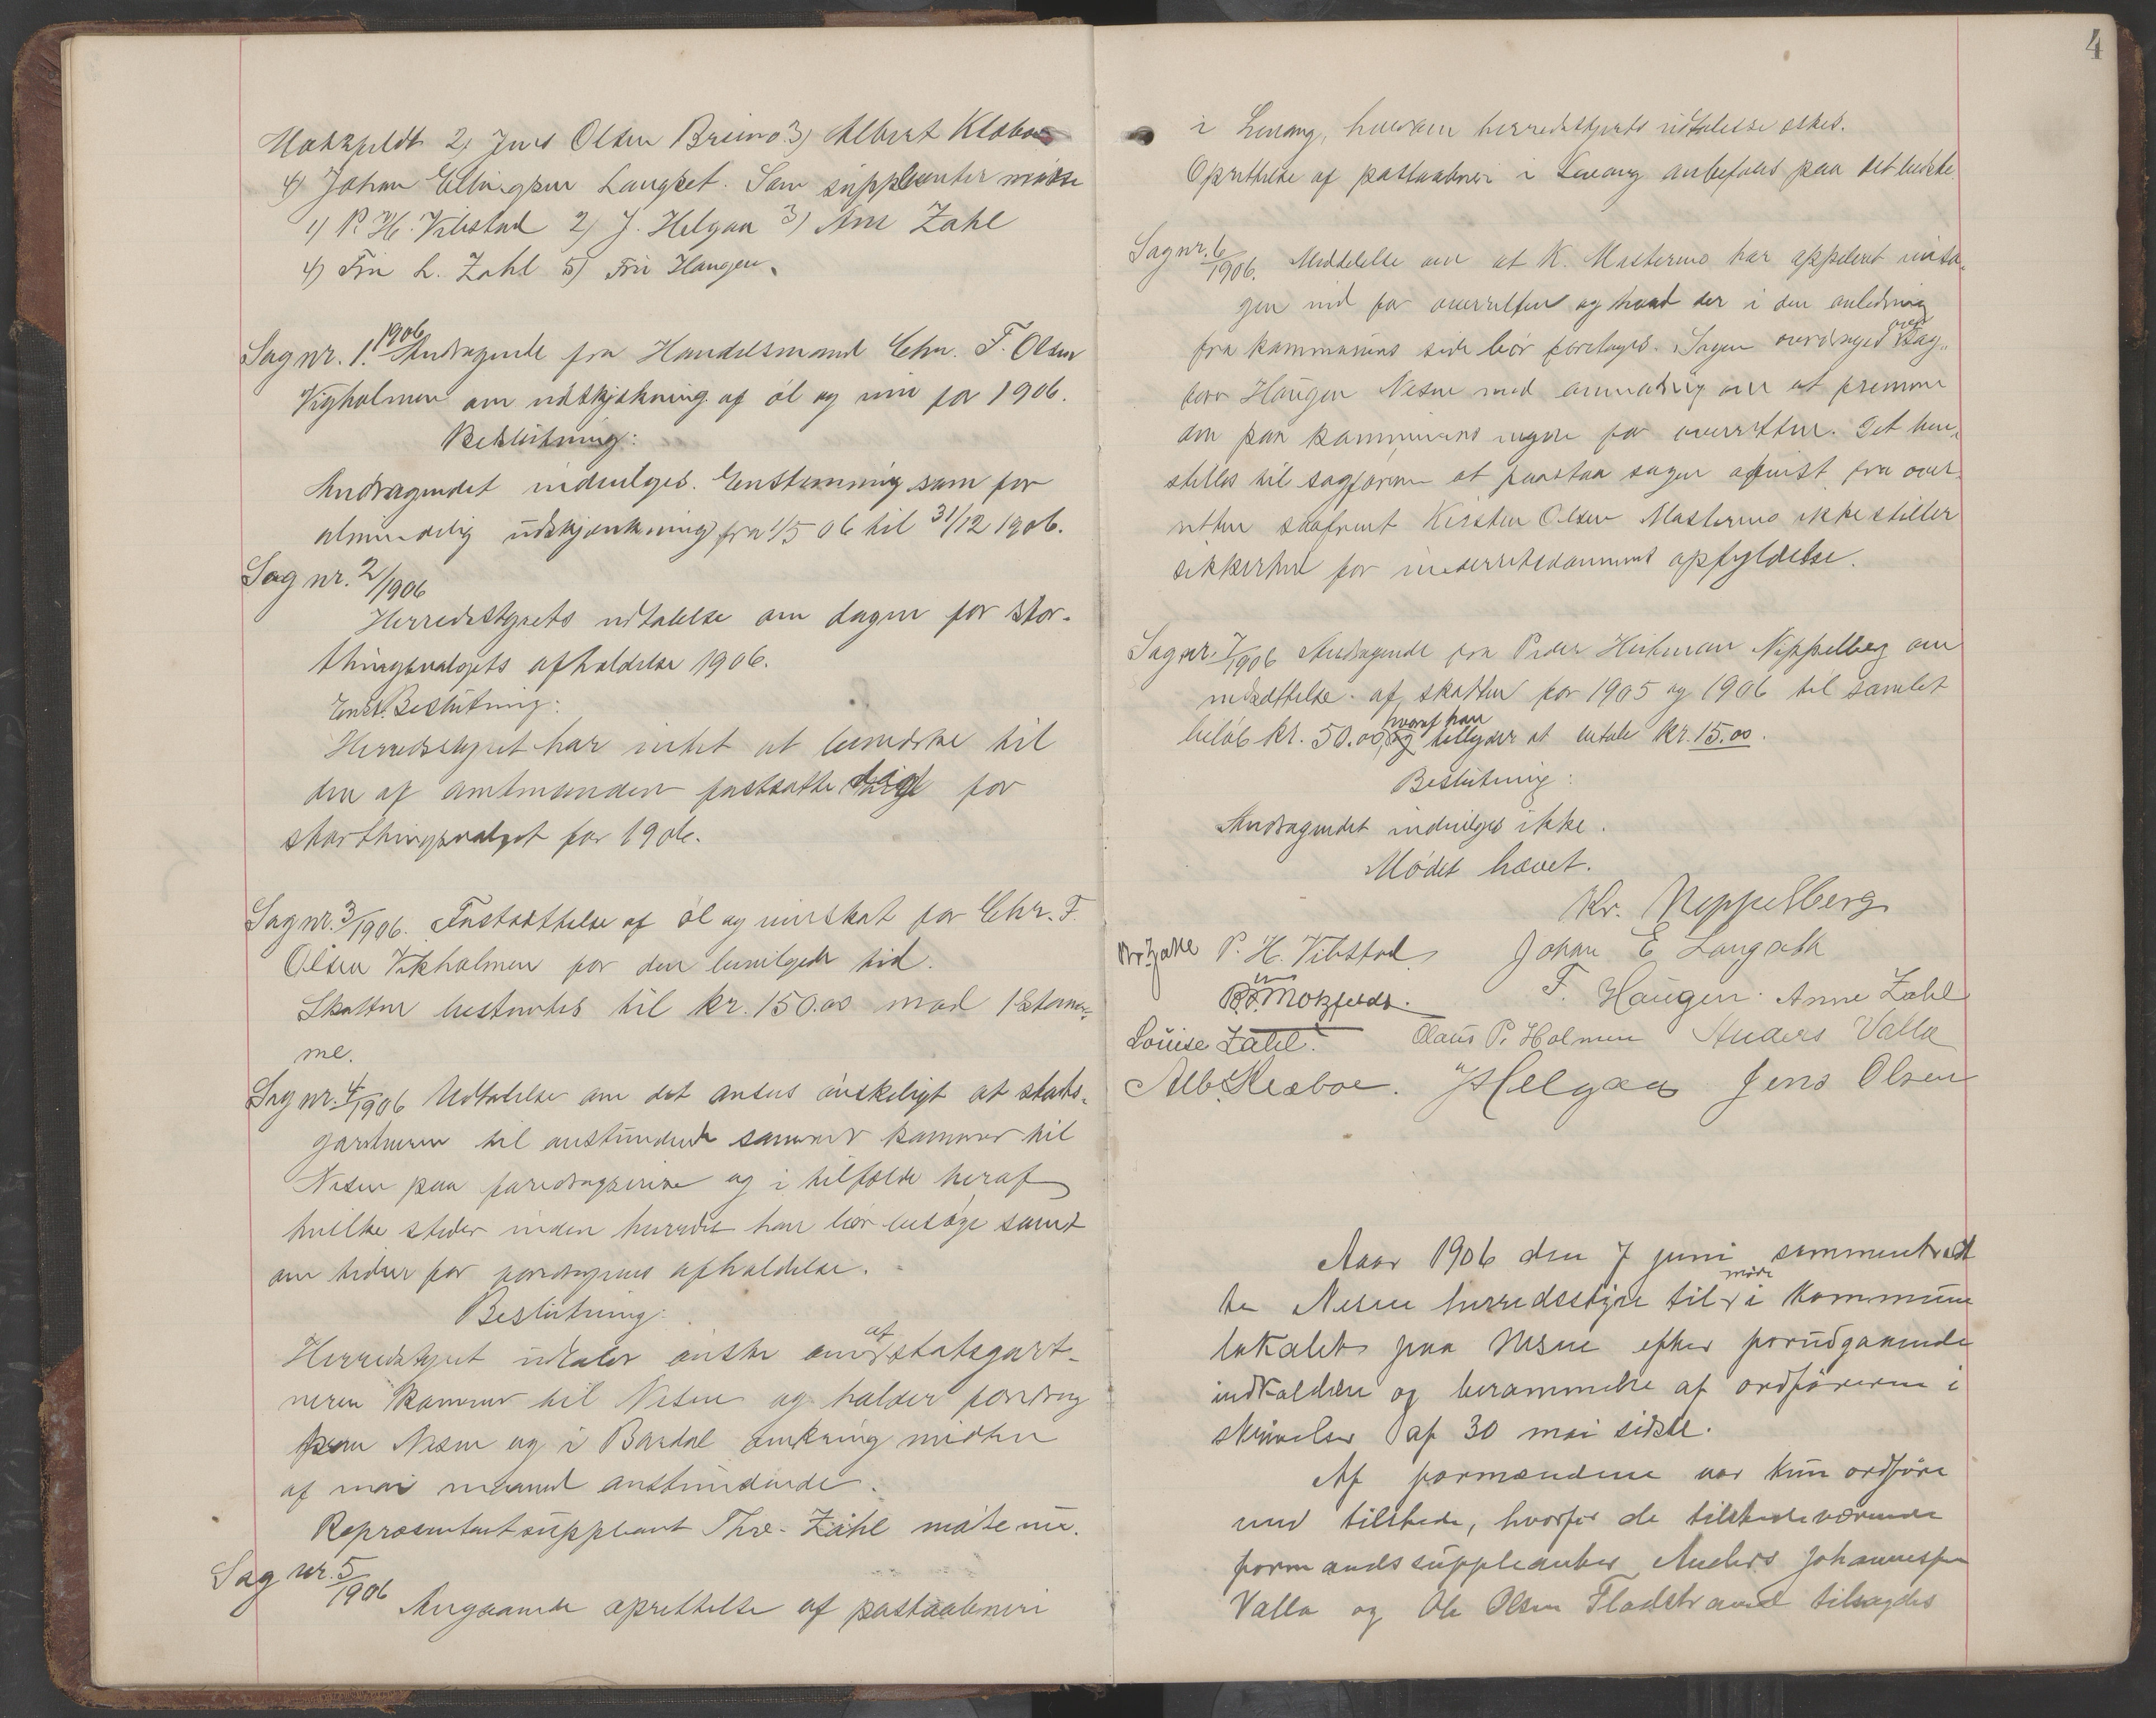 Motzfeldt 2) Jens Olsen Breimo 3) Albert Klæboe
4) Johan Ellingsen Langset. Som supleanter møtte
1) P. H. Vibstad 2) J. Helgaa 3) Ane Zahl
4) Fru L. Zahl 5) Fru Haugen.
Sag nr. 1. 1906 Andragende fra Handelsmand Chr. F. Olsen
Vigholmen om udskjækning af øl og vin for 1906.
Beslutning:
Andragendet indvilges. Enstemmig som for
almindelig udskjænkning fra 1/5 06 til 31/12 1906.
Sag nr. 2/1906
Herredstyrets udtalelse om dagen for stor-
thingsvalgets afholdelse 1906.
Enst. Beslutning:
Herredsstyret har intet at bemerke til
den af amtmanden fastsatte dag for
storthingsvalget for 1906.
Sag nr. 3/1906. Fastsættelse af øl og vinskat for Chr. F.
Olsen Vikholmen for den bevilgede tid.
Skatten bestemtes til kr. 150.00 mod 1 stem-
me.
Sag nr. 4/1906 Udtalelse om det ansees ønskeligt at stats-
gartneren til anstundende sommer kommer til
Nesne paa foredragsreise og i tilfælde heraf
hvilke steder inden herredet han bør besøge samt
om tiden for foredragenes afholdelse.
Beslutning:
Herredstyret udtaler ønske om af statsgart-
neren kommer til Nesne og holder foredrag
paa Nesne og i Bardal omkring midten
af mai maaned anstundende.
Repræsentantsuppleant Thre. Zahl møtte nu.
Sag nr. 5/1906 Angaaende oprettelse af postaabneri
4
i Levang, hvorom herredstyrets udtalelse æskes.
Oprettelse af postaabneri i Levang anbefales paa det bedste.
Sag nr. 6/1906. Meddelelse om at K. Masternes har appeleret
gen ind for overretten og hvad der i den anledning
fra kommunens side bør foretages. Sagen overdrages over Sag-
fører Haugen Nesne med anmodning om at fremme
den paa kommunens vegne for overretten. Det hen-
stilles til sagføreren at paastaa sagen afvist fra over-
retten saafremt Kirsten Olsen Masternes ikke stiller
sikkerhed for underretsdommens opfyldelse.
Sag nr. 7/1906 Andragende fra Peder Neppelberg om
nedsættelse af skatten for 1905 og 1906 til samlet
beløb kr. 50.00, hvoraf han tilbyder at betale kr. 15.00.
Beslutning:
Andragendet indvilges ikke.
Mødet hævet.
Kr. Neppelberg
P. H. Vibstad Johan E Langseth
Motzfeldt. F. Haugen. Anne Zahl
Louise Zahl. Claus P. Holmen Anders Valla
Alb. Klæboe. J Helgaa Jens Olsen
Aar 1906 den 7 juni sammentraad
te Nesne herredsstyre til møde i Kommune
lokalet paa Nesne efter forudgaaende
indkaldelse og berammelse af ordføreren i
skrivelse af 30 mai sidste.
Af formændene var kun ordføre
ren tilstede, hvorfor de tilstedeværende
formandssuppleanter Anders Johannesen
Valla og Ole Olsen Fladstrand tilsagdes